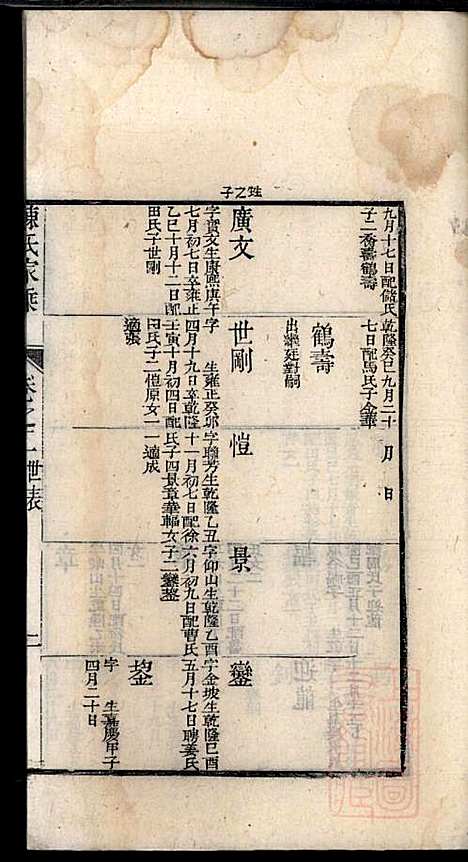 甡之子
九月十七日配儲氏
子二喬壽鶴壽
乾隆癸巳九月二十
七日配馬氏子金華
月日
鶴壽
出繼廷對嗣
廣文
字賓文生康熙庚午
七月初七日卒雍正
乙巳十月十二日配
田氏子世剛
世剛
字 生雍正癸卯
四月十九日卒乾隆
壬寅十月初四日配
田氏子二愷原女一
適張
愷
字聯芳生乾隆乙丑
十一月初七日配徐
氏子四景章華輻女
一適成
景
字仰山生乾隆乙酉
六月初九日配曹氏
子二鑾鋆
鑾
字金坡生乾隆己酉
五月十七日聘姜氏
鋆
字 生嘉慶甲子
四月二十日
陳氏家乘
卷之二世表